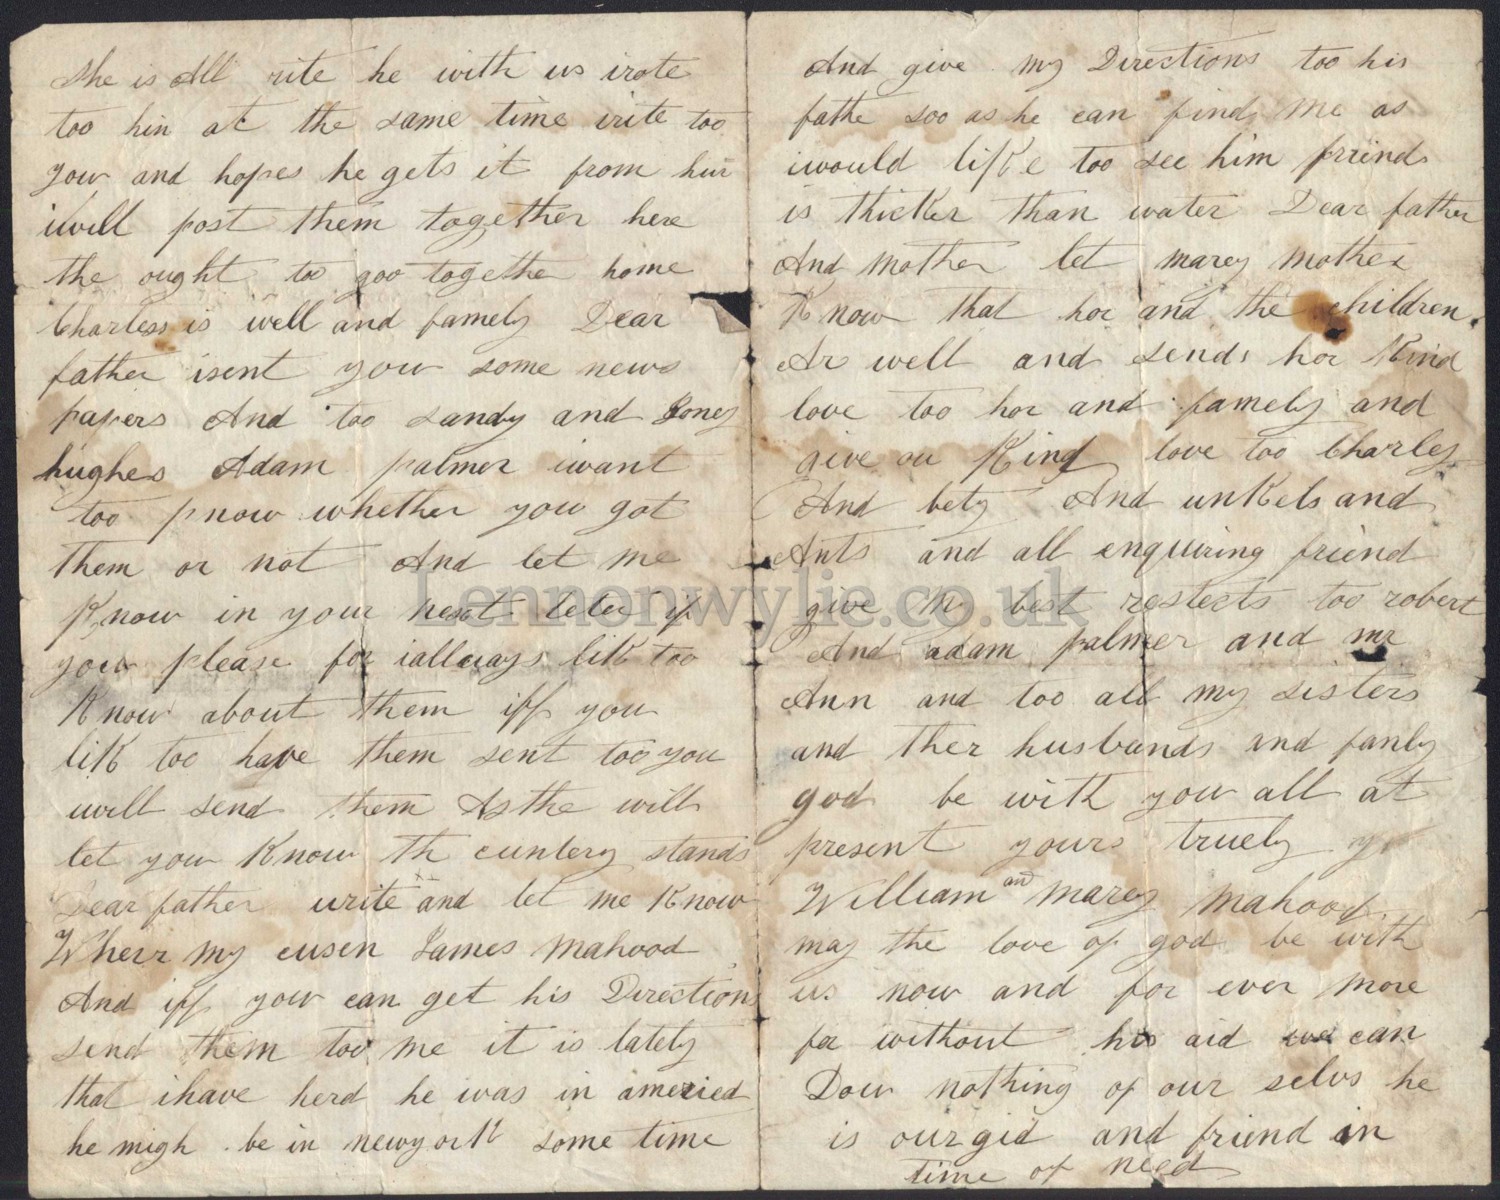 She is All rite he with us irote
too him at the same time irite too
yow and hopes he gets it from him
iwill post them together here
the ought to goo together home
Charless is well and famely Dear
father isent yow some news
papers And too sandy and Joney
hughes Adam palmer iwant
too know whether yow got
them or not And let me
Know in your next leter if
yow please for iallways liK too
Know about them iff you
liK too have them sent too you
will send them As the will
let yow Know th cuntery stands
Dear father write and let me Know
Wherr my cusen James Mahood
And iff yow can get his Directions
send them too me it is lately
that ihave herd he was in americed
he migh be in newyorK some time
And give my Directions too his
fathe soo as he can find me as
iwould liKe too see him friends
is thicKer than water Dear father
And Mother let marey mother
Know that hor and the children
Ar well and sends hor Kind
love too hor and famely and
give ou Kind love too Charley
And bety And unKels and
Ants and all enquiring friend
give my best respects too robert
And adam palmer and mr
Ann and too all my sisters
and ther husbands and famly
god be with yow all at
present yours truely
William and Marey Mahood
may the love of god be with
us now and for ever more
for without his aid we can
Dow nothing of our selvs he
is our gid and friend in
time of need
Lennonwylie.co.uk